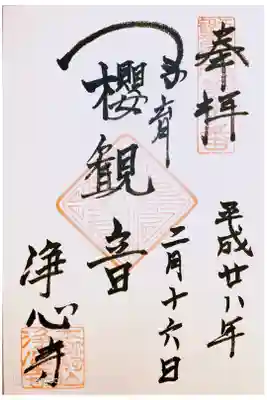 奉拝
平成廿八年
二月十六日
櫻観音
浄心寺